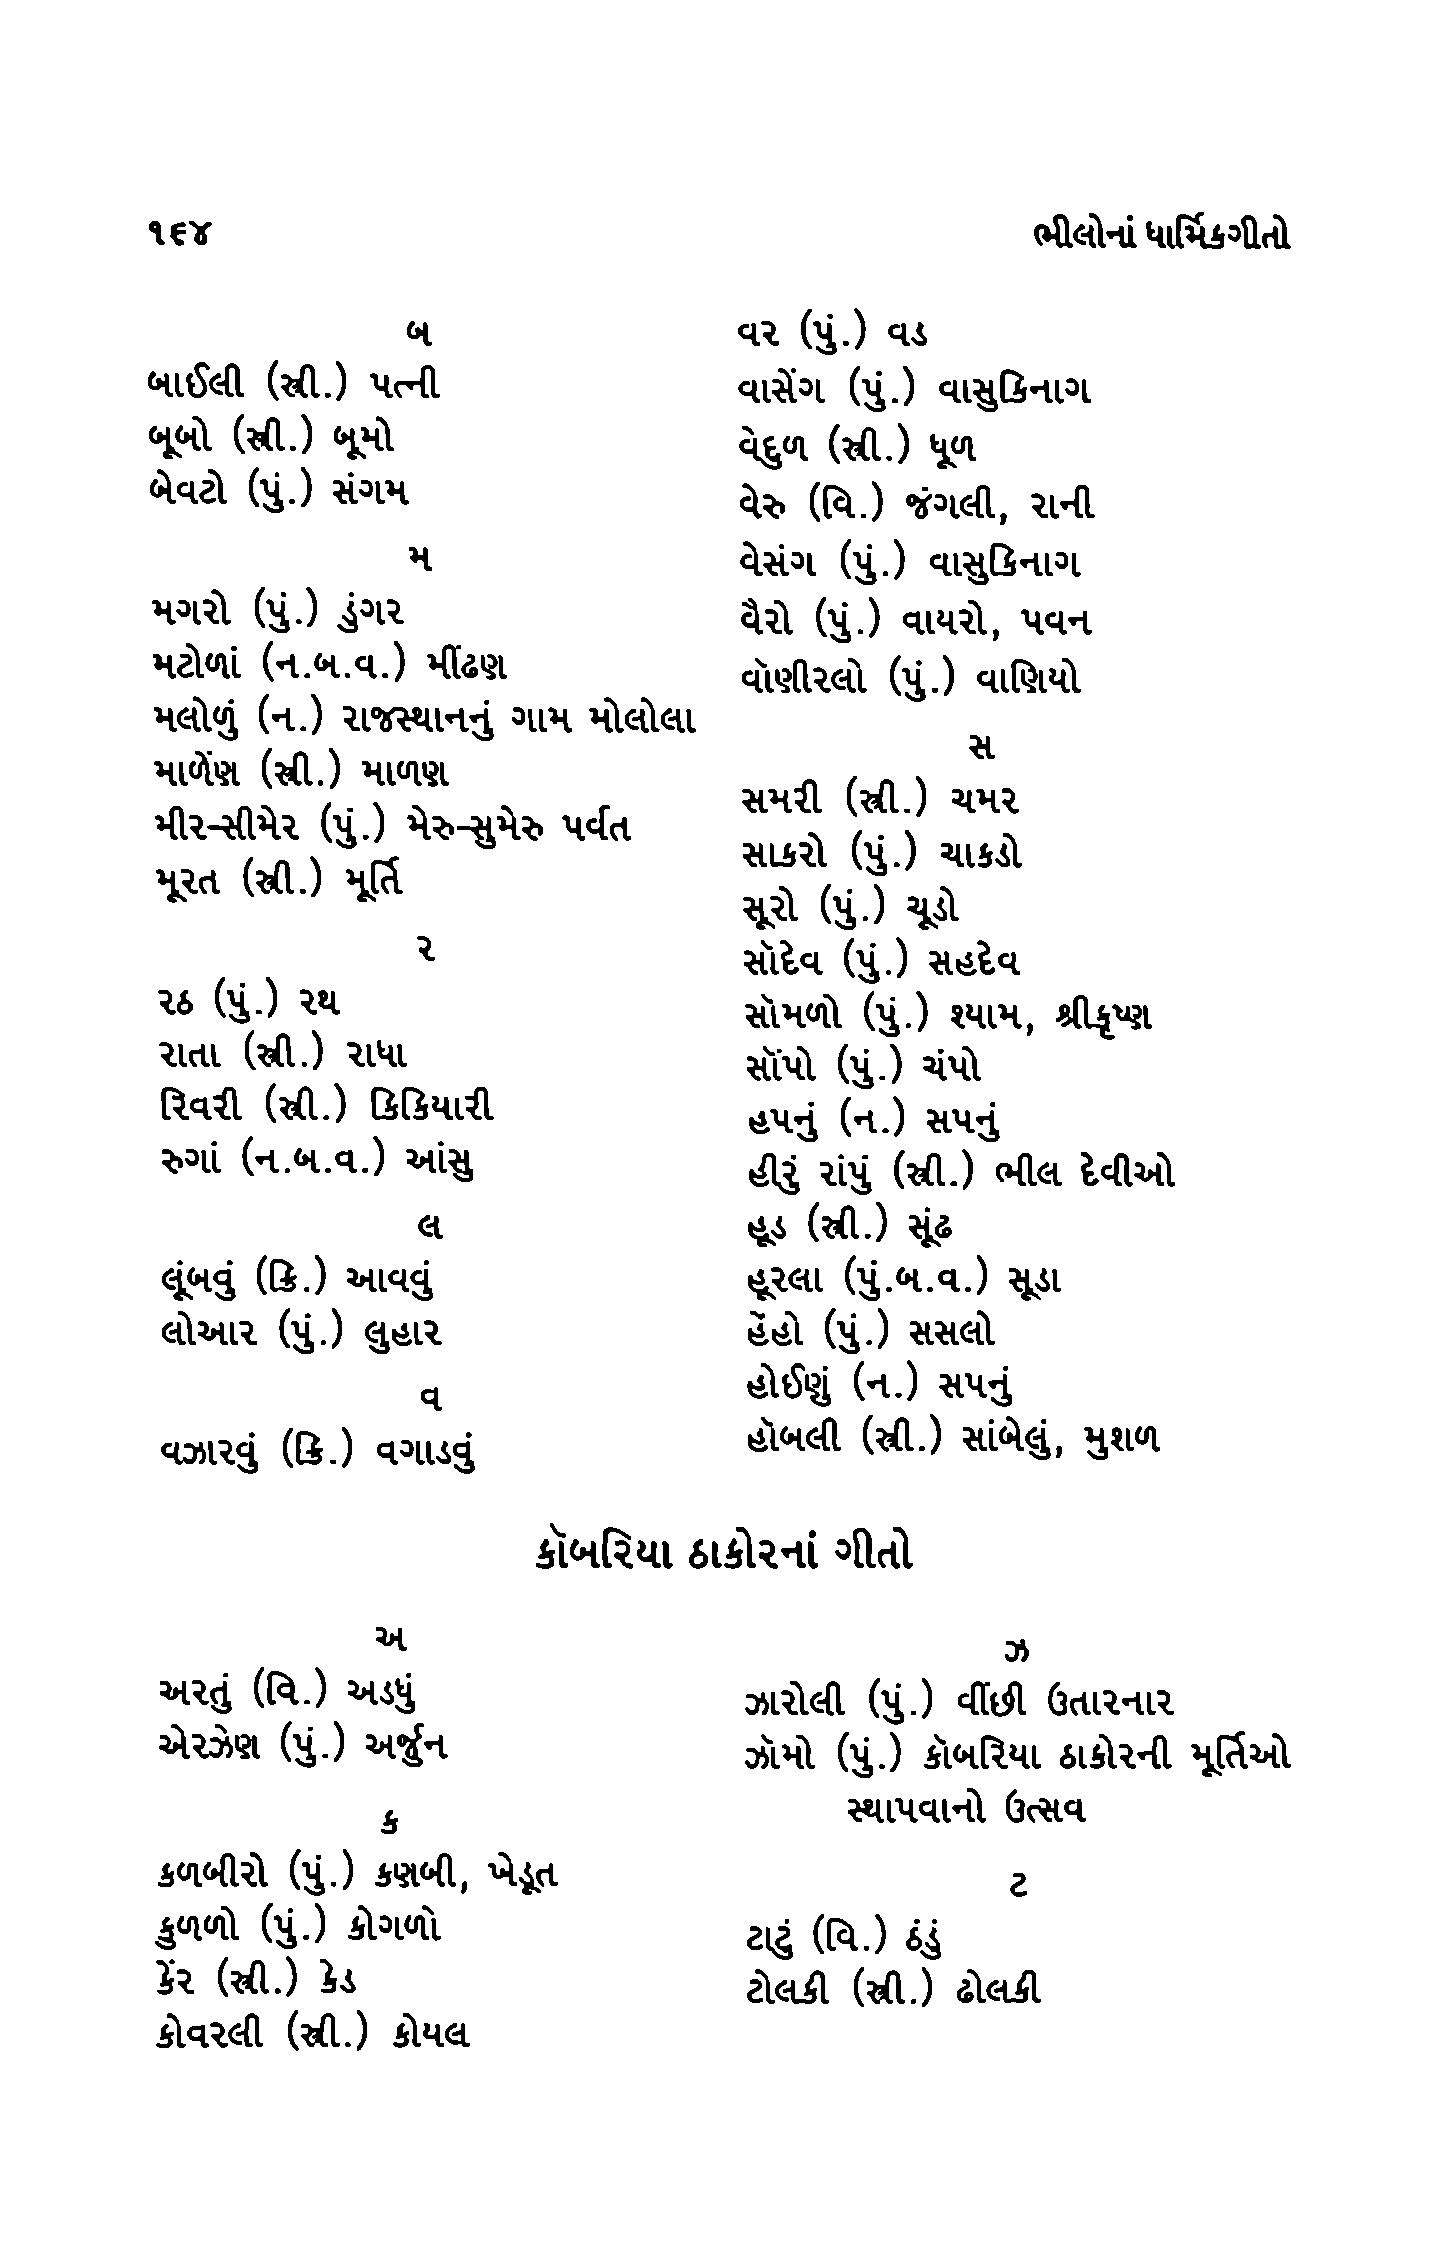 ૧૬૪
ભીલોનાં ધાર્મિકગીતો
બ
બાઈલી (સ્ત્રી.) પત્ની
બૂબો (સ્ત્રી.) બૂમો
બેવટો (પું.) સંગમ
મ
મગરો (પું.) ડુંગર
મટોળાં (ન.બ.વ.) મીંઢણ
મલોળું (ન.) રાજસ્થાનનું ગામ મોલોલા
માળેંણ (સ્ત્રી.) માળણ
મીર-સીમેર (પું.) મેરુ-સુમેરુ પર્વત
મૂરત (સ્ત્રી.) મૂર્તિ
ર
રઠ (પું.) રથ
રાતા (સ્ત્રી.) રાધા
રિવરી (સ્ત્રી.) કિકિયારી
રુગાં (ન.બ.વ.) આંસુ
લ
લૂંબવું (ક્રિ.) આવવું
લોઆર (પું.) લુહાર
વ
વઝારવું (ક્રિ.) વગાડવું
વર (પું.) વડ
વાસેંગ (પું.) વાસુકિનાગ
વેદુળ (સ્ત્રી.) ધૂળ
વેરુ (વિ.) જંગલી, રાની
વેસંગ (પું.) વાસુકિનાગ
વૈરો (પું.) વાયરો, પવન
વૉણીરલો (પું.) વાણિયો
સ
સમરી (સ્ત્રી.) ચમર
સાકરો (પું.) ચાકડો
સૂરો (પું.) ચૂડો
સૉદેવ (પું.) સહદેવ
સૉમળો (પું.) શ્યામ, શ્રીકૃષ્ણ
સૉંપો (પું.) ચંપો
હપનું (ન.) સપનું
હીરું રાંપું (સ્ત્રી.) ભીલ દેવીઓ
હૂડ (સ્ત્રી.) સૂંઢ
હૂરલા (પું.બ.વ.) સૂડા
હેંહો (પું.) સસલો
હોઈણું (ન.) સપનું
હૉબલી (સ્ત્રી.) સાંબેલું, મુશળ
કૉબરિયા ઠાકોરનાં ગીતો
અ
અરતું (વિ.) અડધું
એરઝેણ (પું.) અર્જુન
ક
કળબીરો (પું.) કણબી, ખેડૂત
કુળળો (પું.) કોગળો
કેંર (સ્ત્રી.) કેડ
કોવરલી (સ્ત્રી.) કોયલ
ઝ
ઝારોલી (પું.) વીંછી ઉતારનાર
ઝૉમો (પું.) કૉબરિયા ઠાકોરની મૂર્તિઓ
સ્થાપવાનો ઉત્સવ
ટ
ટાટું (વિ.) ઠંડું
ટોલકી (સ્ત્રી.) ઢોલકી